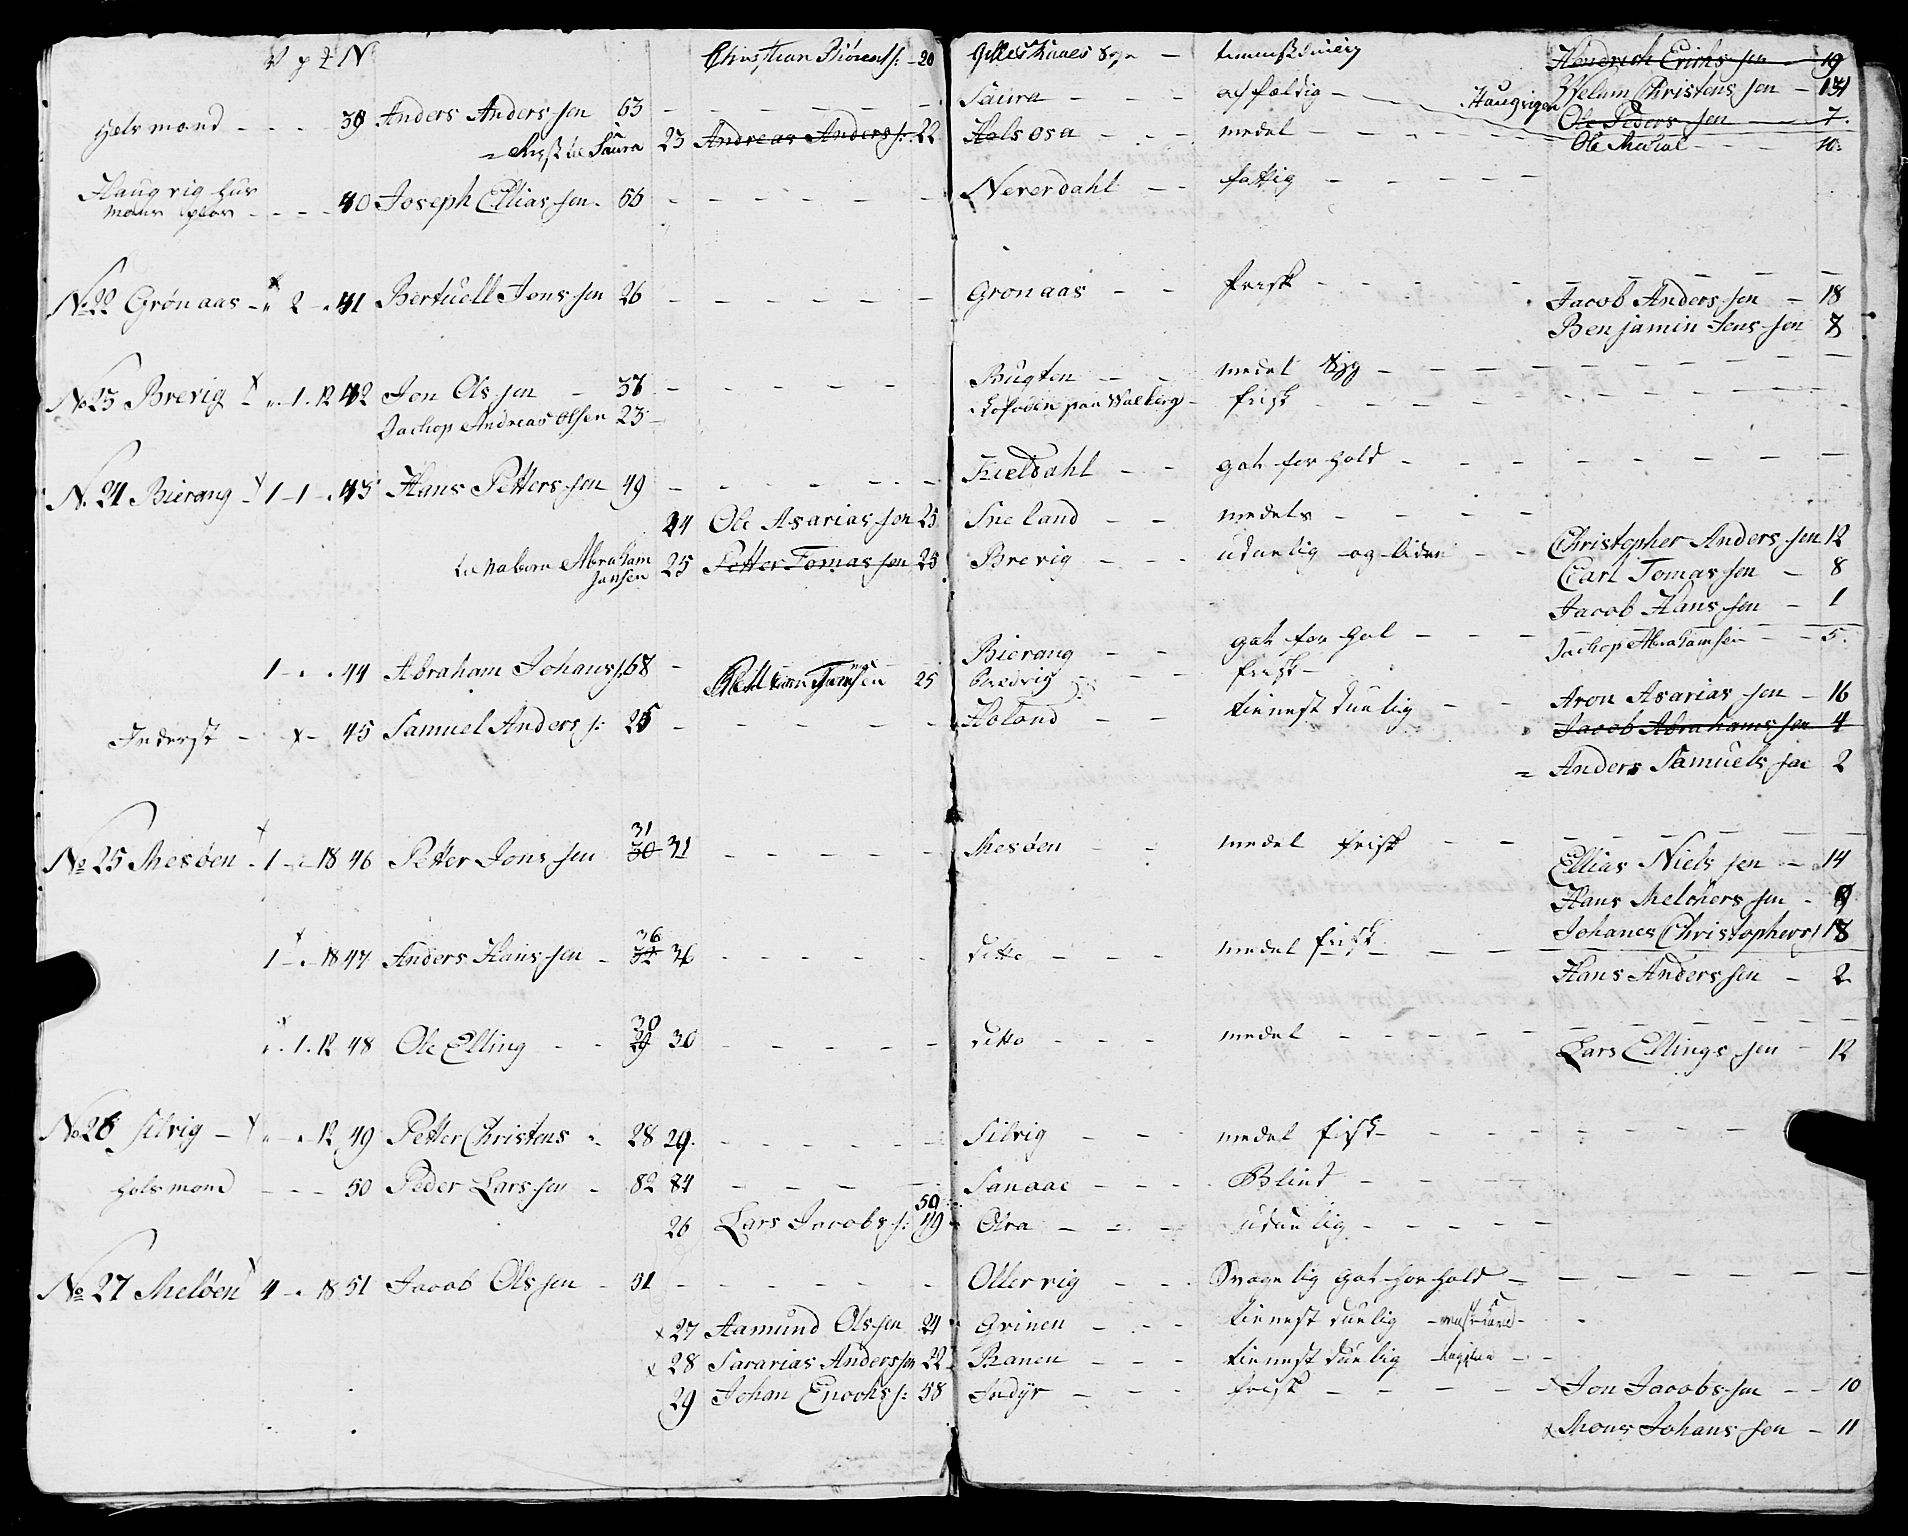 V p ℔ N. Christian Biörents: - 20 Gilleskaaels Sogn - tienestduelig Hendrich Erichssen - 19
Saura - - - - Haugvigen Welum Christenssen - 13
Helsmænd - - - - 39 Anders Anderssen 63 - - - - - -
Ole Pederssen - 7.
23 Andreas Anderss: 22 Holsosa - - - medel - - - -
Ole - - - 10.
Haugvig huus
mans plas - - - - 40 Joseph Elliassen. 66 - - - - - - Nererdahl - - fattig - - - - -
No 22 Grönaas - „ 2 - „ 41 Bertuell Jonssen 26 - - - - - - Gronaas - - frisk - - - -
Jacob Anderssen - 18
Benjamin Jenssen 8
No 23 Brevig - „. 1. 12 42 Jon Olssen - 37 - - - - - Bugten - - medel Syg - - - -
Jachop Andreas Olsen 23 - frisk - - - -
N. 24 Bierang - 1 - 1 - „ 43 Hans Petterssen 49 - - - - - - Kieldahl - - gat for hold - - - -
24 Ole Asariassen 25 Sneland - - medels - - - -
Christopher Anderssen 12
Abraham
Jansen 25 Petter Tomassen 25 Brevig - - - uduelig og liden - -
Carl Tomassen - 8
Jacob Hanssen - 1
1 - „ - „ 44 Abraham Johanss: 68 - Bierang - - gat for hol - - - Jachop Abrahamsen - - 5.
25 Bredvig - - frisk -
Aron Asariassen - 16
Inderst - x - 45 Samuel Anderss: 25 - - - - - - Holand - - tienest duelig - -
Jacob Abrahamssen 4
= Anders Samuelssen 2
No 25 Mesöen 1 - „ 18 46 Petter Jonssen 31 30 31 - - - - - Mesöen - - medel frisk - -
Ellias Nielssen - 14
Hans Melcherssen - 9
Johanes Christophers: 18
1 - „. 18 47 Anders Hanssen - 36 34 36 - - - - - ditto - - - medel frisk - - - -
Hans Anderssen - 2
„. 1. 12 48 Ole Elling - - 30 29 30 - - - - - ditto - - - medel - - - -
Lars Ellingssen - 12
No 26 Silvig - „ - „. 12 49 Petter Christens - 28 29. - - - - - Silvig - - - medel fisk - - - -
Holsmænd - - - 50 Peder Larssen - 82 84 - - - - - Sanaae - - - - Blind - - - -
26 Lars Jacobss: 50 49 Olra - - - - uduelig - - - - -
No 27 Melöen 4 - „. 18 51 Jacob Olssen - 31 - - - - - - Ollervig - - - Svagelig gat for hold - - - -
x 27 Aamund Olssen 24 Grinen - - - tienest duelig -
x 28 Sacarias Anderssen 22 Ranen - - - tienest duelig -
29 Johan Enochs: 58 Indyr - - - frisk - - - - - x Jon Jacobssen - - 10
x Mons Johanssen - 11